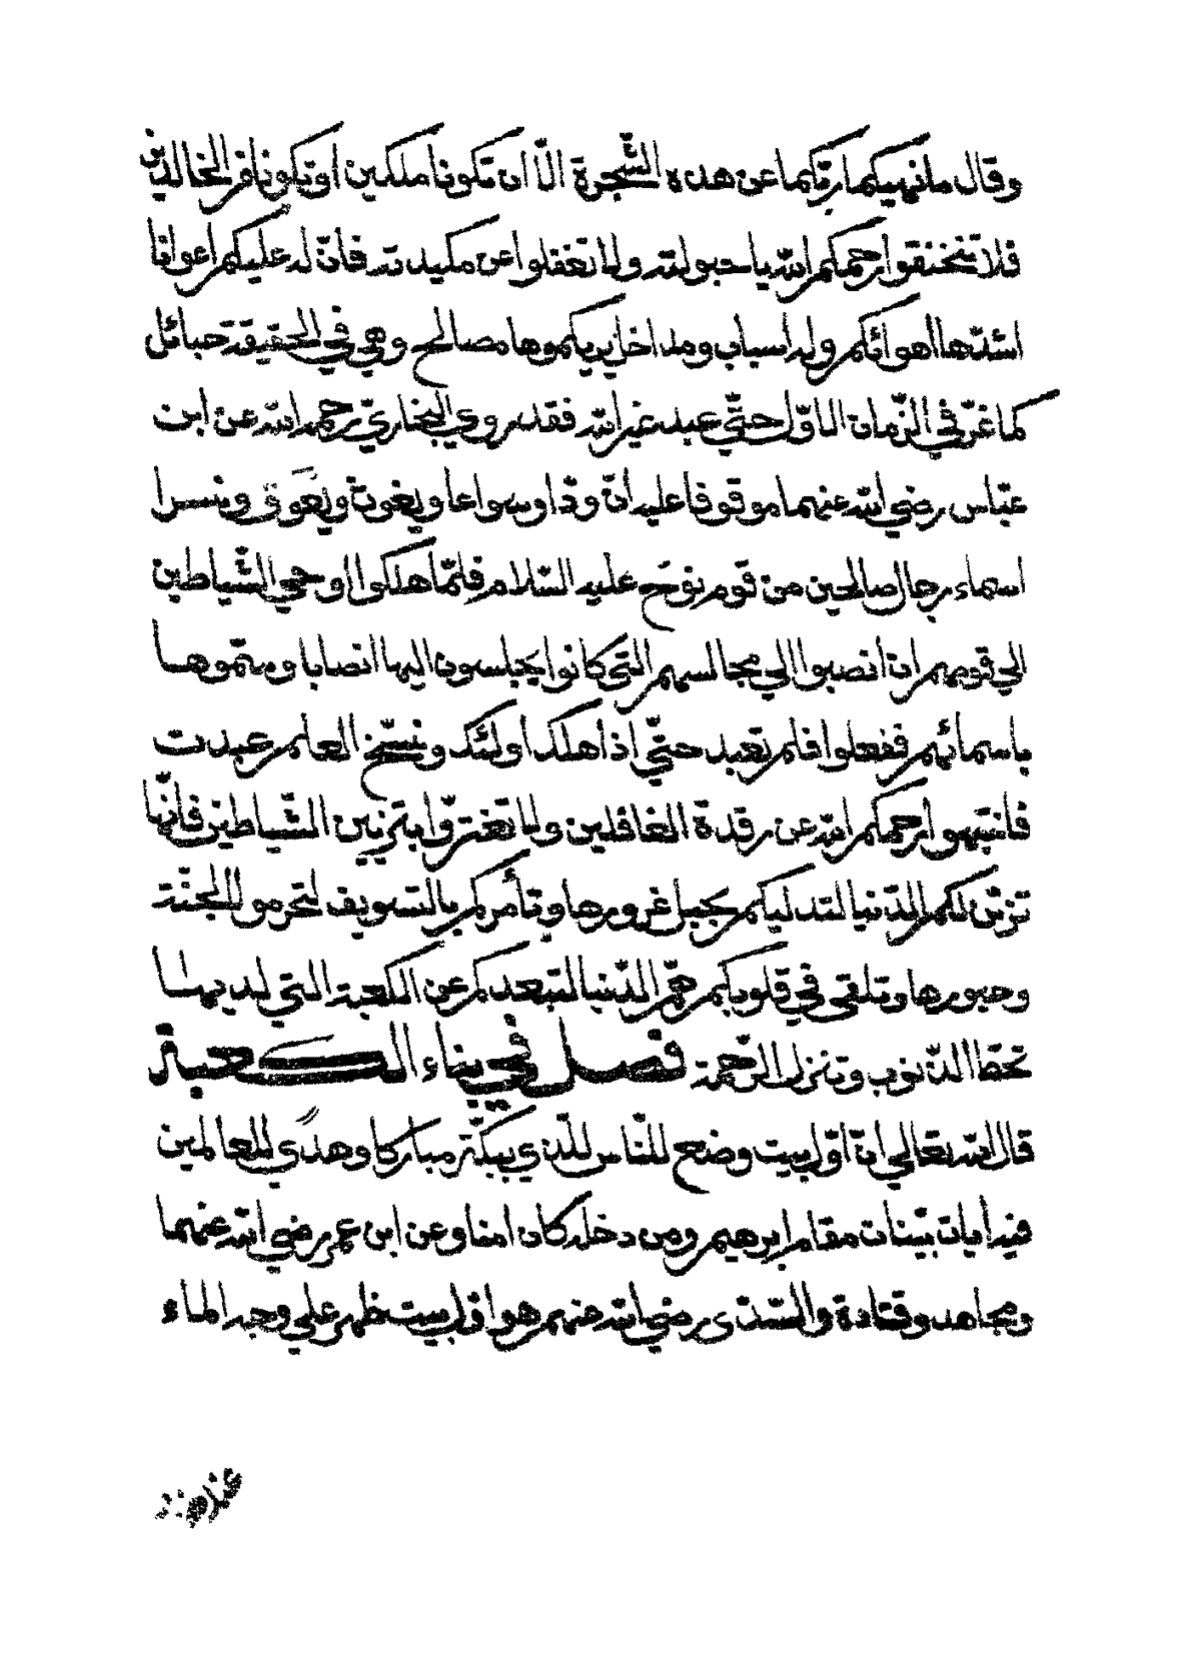 وقال ما نهيكما ربّكما عن هذه الشّجرة الّا ان تكونا ملكين أو تكونا من الخالدين
فلا تختنقوا رحمكم الله يا حبولته ولا تغفلوا عن مكيدته فانّ له عليكم اعوانا
اشدّها اهوائكم وله اسباب ومداخل يريكموها مصالح وهي في الحقيقة حبائل
كما غرّ في الزّمان الاوّل حتّي عبد غير الله فقد روي البخاريّ رحمه الله عن ابن
عبّاس رضي الله عنهما موقوفا عليه انّ ودّا وسواعا ويغوث ويعوق ونسرا
اسماء رجال صالحين من قوم نوح عليه السّلام فلمّا هلكوا اوحي الشّياطين
الي قومهم ان انصبوا الي مجالسهم التي كانوا يجلسون اليها انصابا وسمّوها
باسمائهم ففعلوا فلم تعبد حتّي اذا هلك أولئك ونسّخ العلم عبدت
فانتبهوا رحمكم الله عن رقدة الغافلين ولا تغترّوا بتزيين الشّياطين فانّها
تزيّن لكم الدّنيا لتدليكم بحبل غرورها وتأمركم بالتسويف لتحرموا الجنّة
وحبورها وتلقي في قلوبكم همّ الدّنيا لتبعدكم عن الكعبة التي لديها
تحطّ الذّنوب وتنزل الرّحمة فصل في بناء الكعبة
قال الله تعالي انّ اوّل بيت وضع للنّاس للّذي ببكّة مباركا وهدًي للعالمين
فيه أيات بيّنات مقام ابرهيم ومن دخله كان امنا وعن ابن عمر رضي الله عنهما
ومجاهد وقتادة والسّدّي رضي الله عنهم هو اوّل بيت ظهر علي وجه الماء
عند